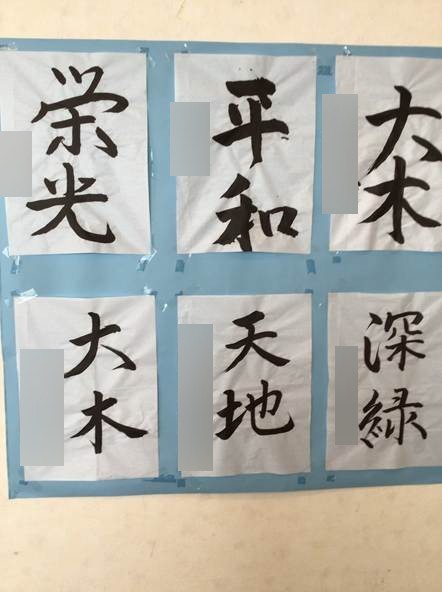 栄光
平和
大木
大木
天地
深緑